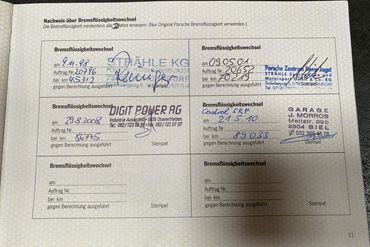 Nachweis über Bremsflüssigkeitswechsel
Die Bremsflüssigkeit mindestens alle 2 Jahre erneuern. (Nur Original Porsche Bremsflüssigkeit verwenden.)
Bremsflüssigkeitswechsel
am 9.11.98
Auftrag Nr. 20796
bei km 45312
gegen Berechnung ausgeführt Stempel
STRÄHLE KG
Bremsflüssigkeitswechsel
am 09.05.01
Auftrag Nr.
bei km 70219
gegen Berechnung ausgeführt Stempel
Porsche Zentrum
STRÄHLE
Bremsflüssigkeitswechsel
am 29.8.2008
Auftrag Nr.
bei km 86775
gegen Berechnung ausgeführt Stempel
DIGIT POWER AG
Bremsflüssigkeitswechsel
Castrol SRF
am 21.5.10
Auftrag Nr.
bei km 89033
gegen Berechnung ausgeführt Stempel
GARAGE
J. MORROS
Mettstr. 99b
2504 BIEL
Bremsflüssigkeitswechsel
am
Auftrag Nr.
bei km
gegen Berechnung ausgeführt Stempel
Bremsflüssigkeitswechsel
am
Auftrag Nr.
bei km
gegen Berechnung ausgeführt Stempel
21